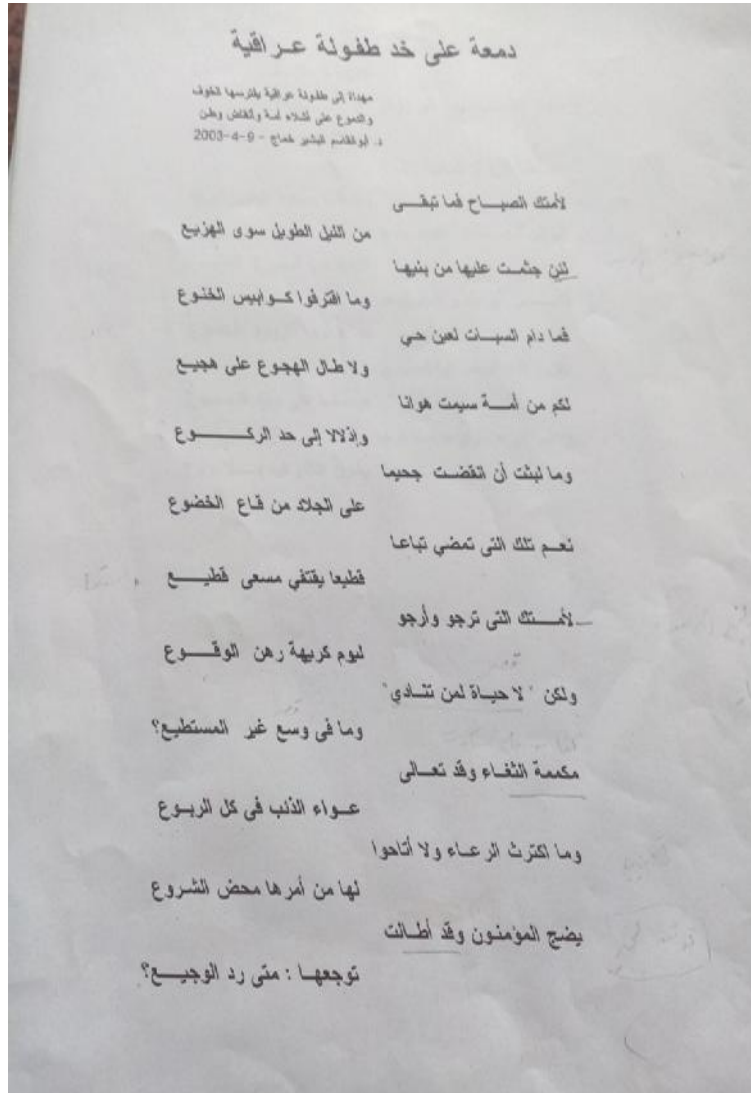 دمعة على خد طفولة عراقية
مهداة إلى طفولة عراقية يفترسها الخوف
والجوع على أشلاء أمة وأنقاض وطن
د. أبو القاسم البشير خماج - 9-4-2003
لأمتك الصباح فما تبقى
من الليل الطويل سوى الهزيع
لئن جثمت عليها من بنيها
وما اقترفوا كوابيس الخنوع
فما دام السبات لعين حي
ولا طال الهجوع على هجيع
لكم من أمة سيمت هوانا
وإذلالا إلى حد الركوع
وما لبثت أن انقضت جحيما
على الجلاد من قاع الخضوع
نعم تلك التى تمضي تباعا
قطيعا يقتفي مسعى قطيع
لأمتك التى ترجو وأرجو
ليوم كريهة رهن الوقوع
ولكن "لا حياة لمن تنادي"
وما فى وسع غير المستطيع؟
مكممة الثغاء وقد تعالى
عواء الذئب فى كل الربوع
وما اكترث الرعاء ولا أتاحوا
لها من أمرها محض الشروع
يضج المؤمنون وقد أطالت
توجعها : متى رد الوجيع؟